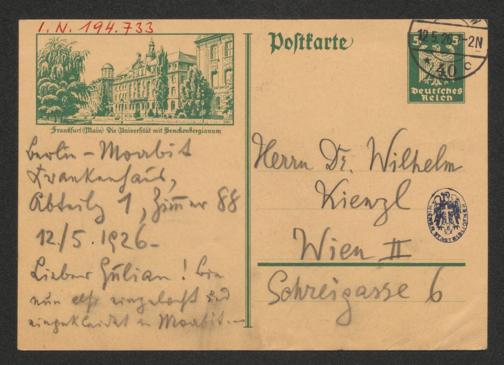 I. N. 194.733
Postkarte
12.5.26 -2N
40 c
5 5
Deutsches
Reich
Frankfurt (Main) Die Universität mit Senckenbergianum
Berlin - Moabit
Krankenhaus,
Abteilg 1, Zimmer 88
12/5.1926 -
Lieber Julian! Bin
nun eingekleidet in Moabit
Herrn Dr. Wilhelm
Kienzl
Wien II
Schreigasse 6